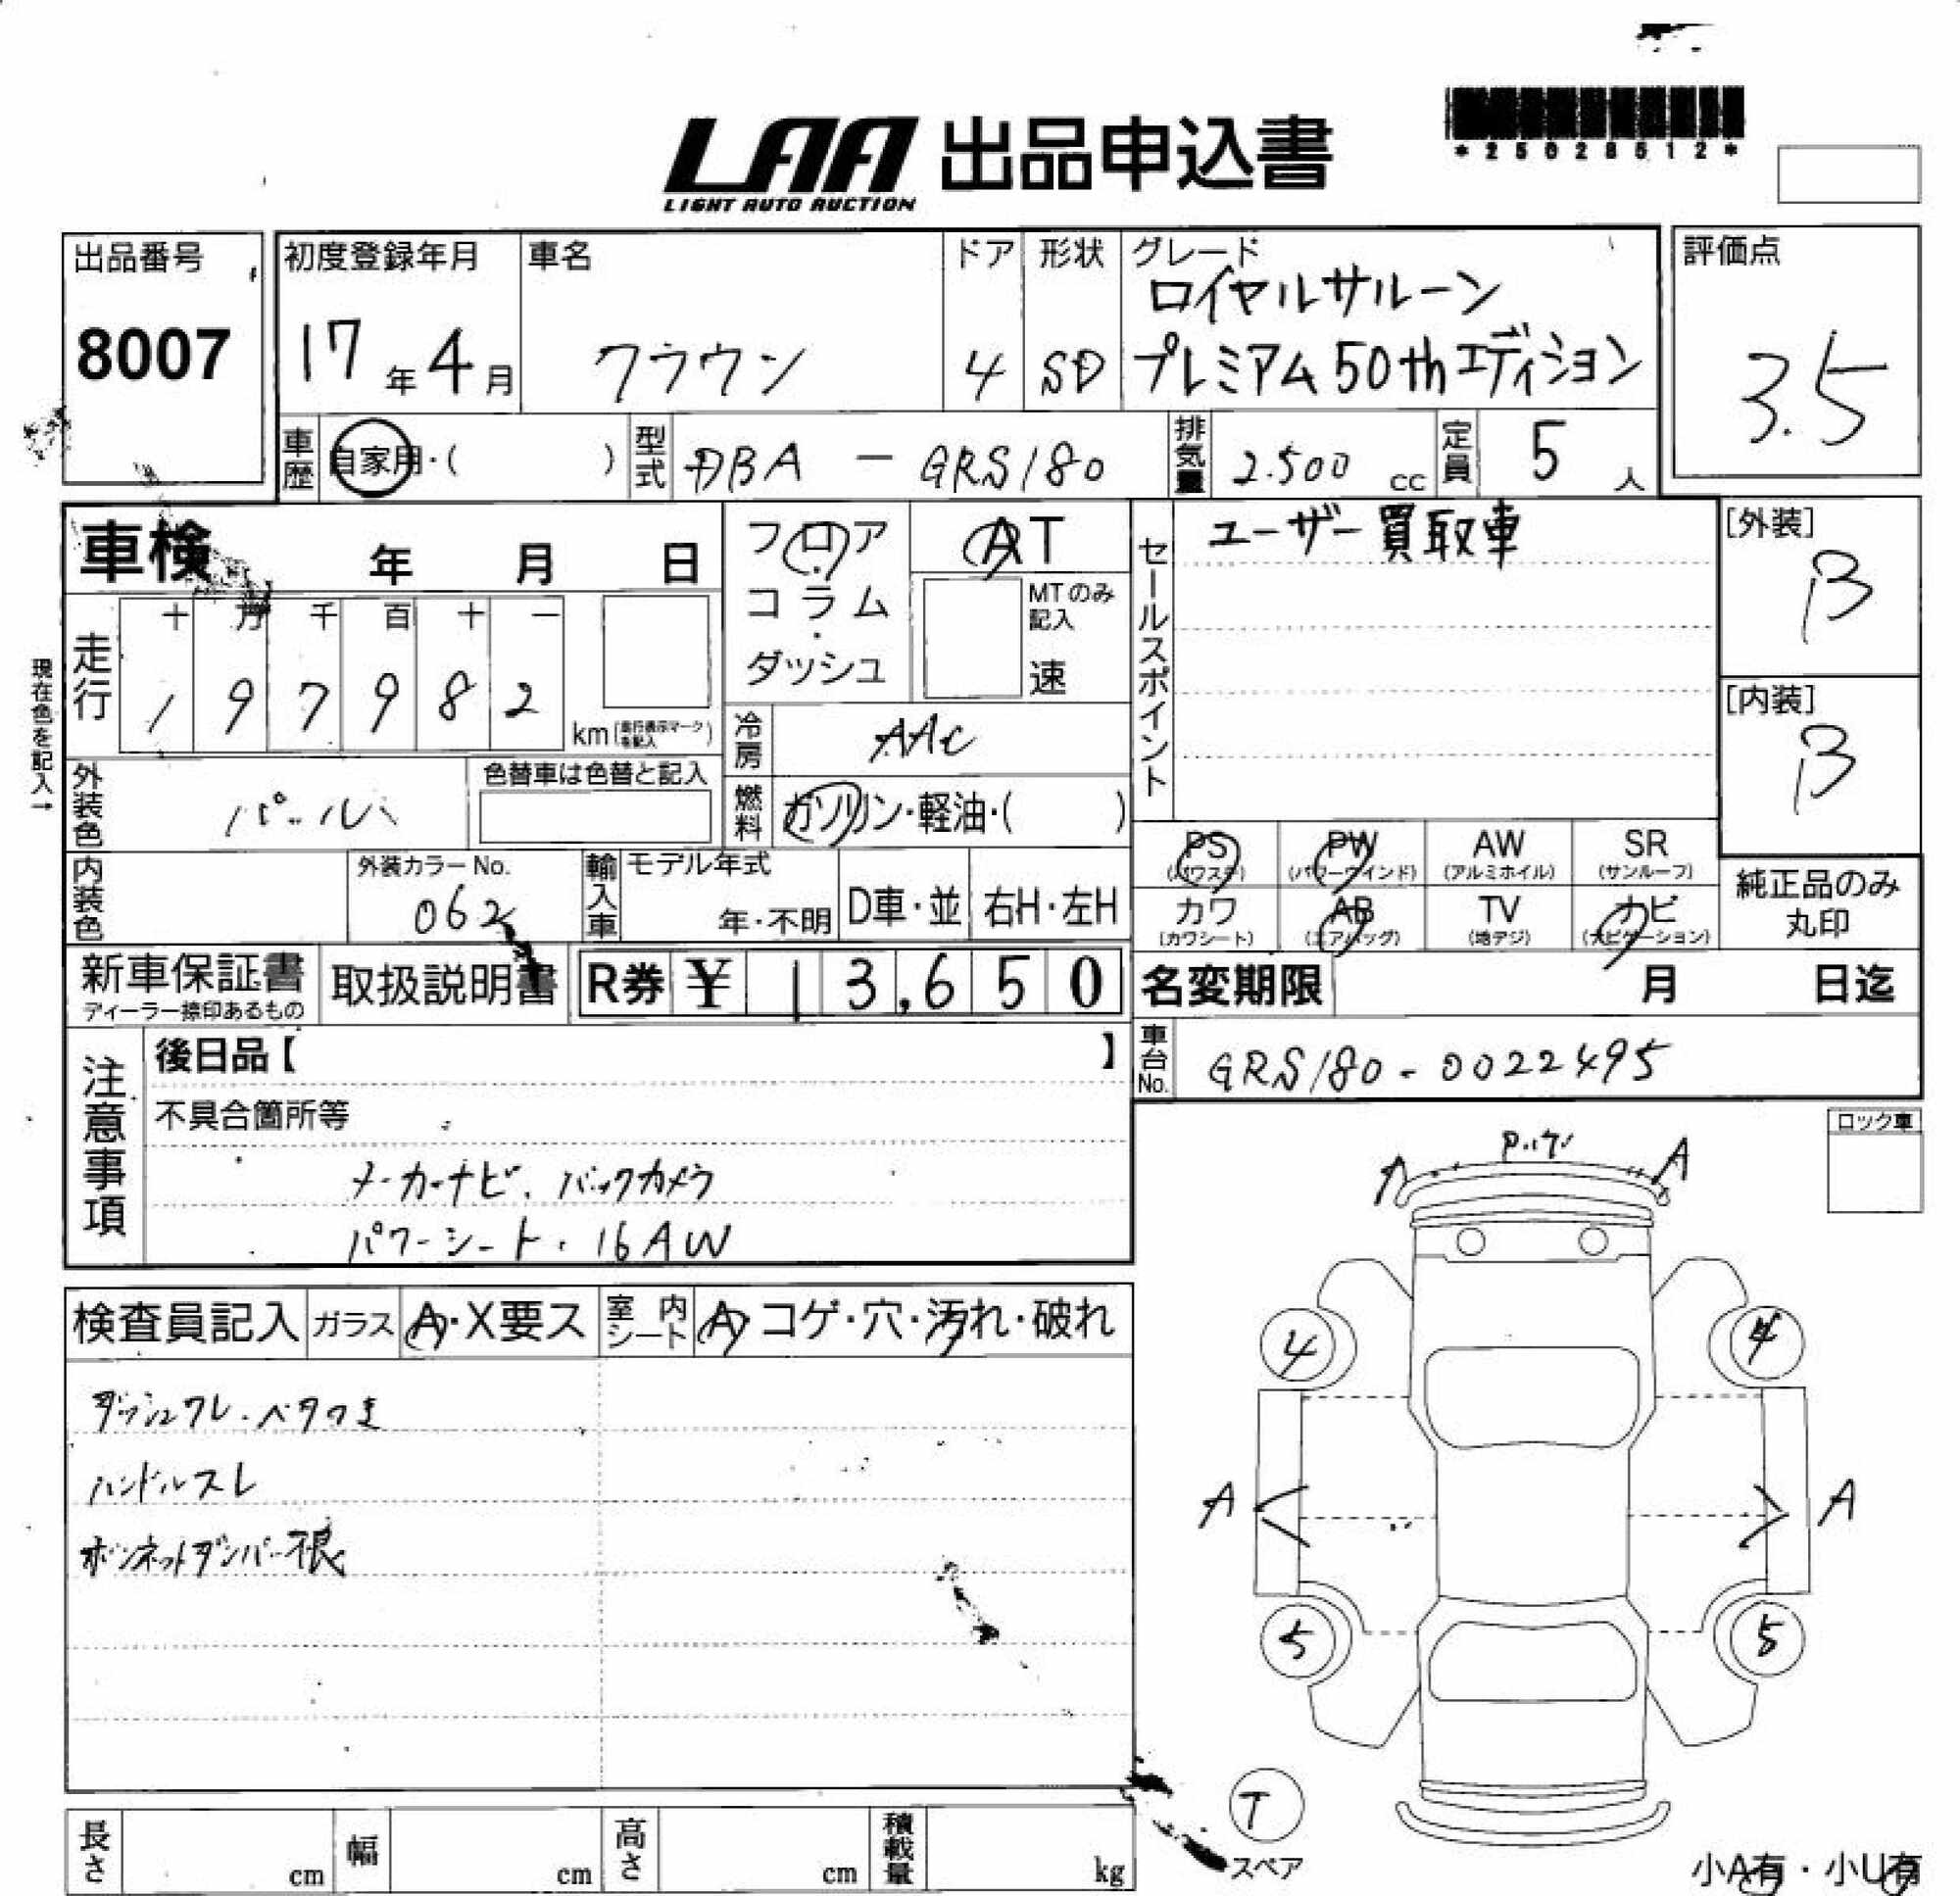 LAA 出品申込書
LIGHT AUTO AUCTION
*25028512*
出品番号
8007
初度登録年月
17年4月
車名
クラウン
ドア
4
形状
SD
グレード
ロイヤルサルーン
プレミアム50thエディション
評価点
3.5
車歴
自家用・( )
型式
DBA - GRS180
排気量
2.500 cc
定員
5 人
車検 年 月 日
フロア
コラム
・
ダッシュ
AT
MTのみ
記入
速
セールスポイント
ユーザー買取車
[外装]
B
[内装]
B
現在色を記入→
走行
十 万 千 百 十 一
1 9 7 9 8 2
km(走行表示マークを記入)
冷房
AAC
外装色
パール
色替車は色替と記入
燃料
ガソリン・軽油・( )
PS
(パワステ)
PW
(パワーウインド)
AW
(アルミホイル)
SR
(サンルーフ)
カワ
(カワシート)
AB
(エアバッグ)
TV
(地デジ)
ナビ
(ナビゲーション)
純正品のみ
丸印
内装色
外装カラーNo.
062
輸入車
モデル年式
年・不明
D車・並
右H・左H
新車保証書
ディーラー捺印あるもの
取扱説明書
R券 ¥ 13,650
名変期限 月 日迄
車台No.
GRS180-0022495
注意事項
後日品【 】
不具合箇所等
メーカーナビ、バックカメラ
パワーシート、16AW
ロック車
A A
検査員記入
ガラス
A・X要ス
室内シート
A・コゲ・穴・汚れ・破れ
ダッシュワレ・ベタつき
ハンドルスレ
ボンネットダンパー不良
4 4
A A
5 5
T
スペア
長さ cm
幅 cm
高さ cm
積載量 kg
小A有・小U有